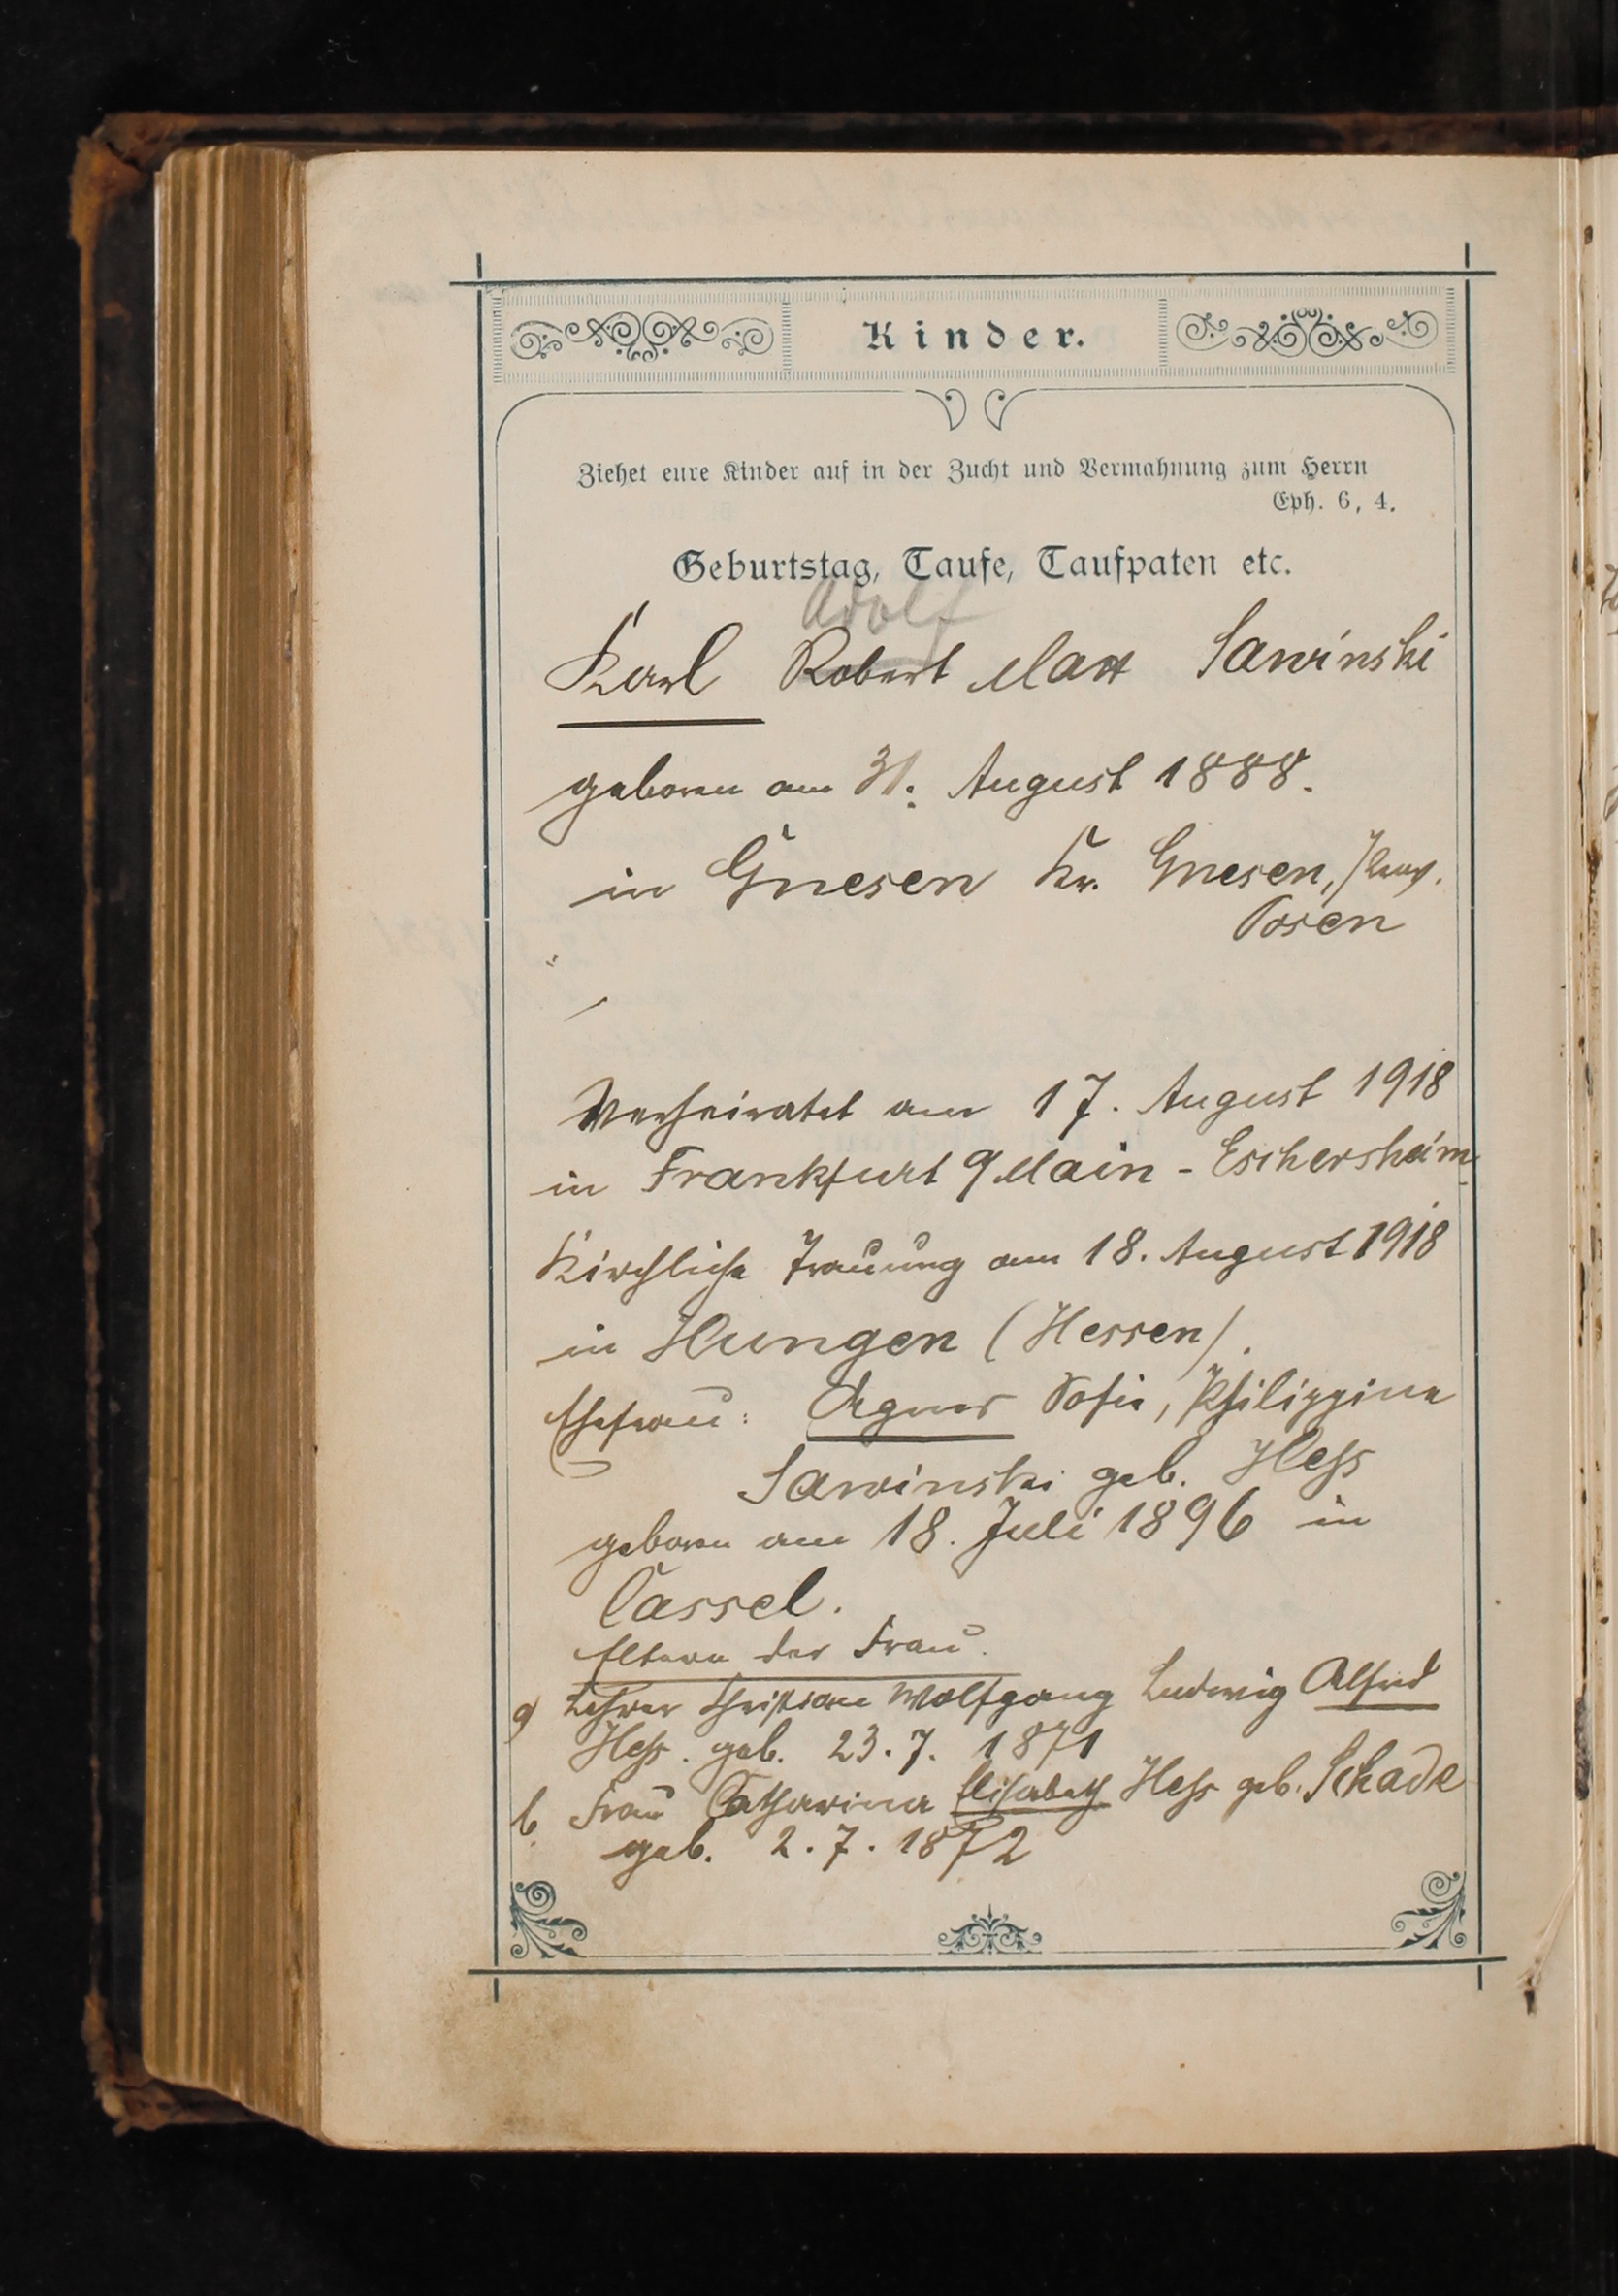 Kinder.
Ziehet eure Kinder auf in der Zucht und Vermahnung zum Herrn
Eph. 6, 4.
Geburtstag, Taufe, Taufpaten etc.
Adolf
Karl Robert Max Sawinski
geboren am 31. August 1888.
in Gnesen Kr. Gnesen, Prov.
Posen
Verheiratet am 17. August 1918
in Frankfurt a/Main - Eschersheim
Kirchliche Trauung am 18. August 1918
in Hungen (Hessen).
Ehefrau: Agnes Sofie, Philippine
Sawinski geb. Heß
geboren am 18. Juli 1896 in
Cassel.
Eltern der Frau.
a) Lehrer Christian Wolfgang Ludwig Alfred
Heß. geb. 23. 7. 1871
b. Frau Catharina Elisabeth Heß geb. Schade
geb. 2. 7. 1872